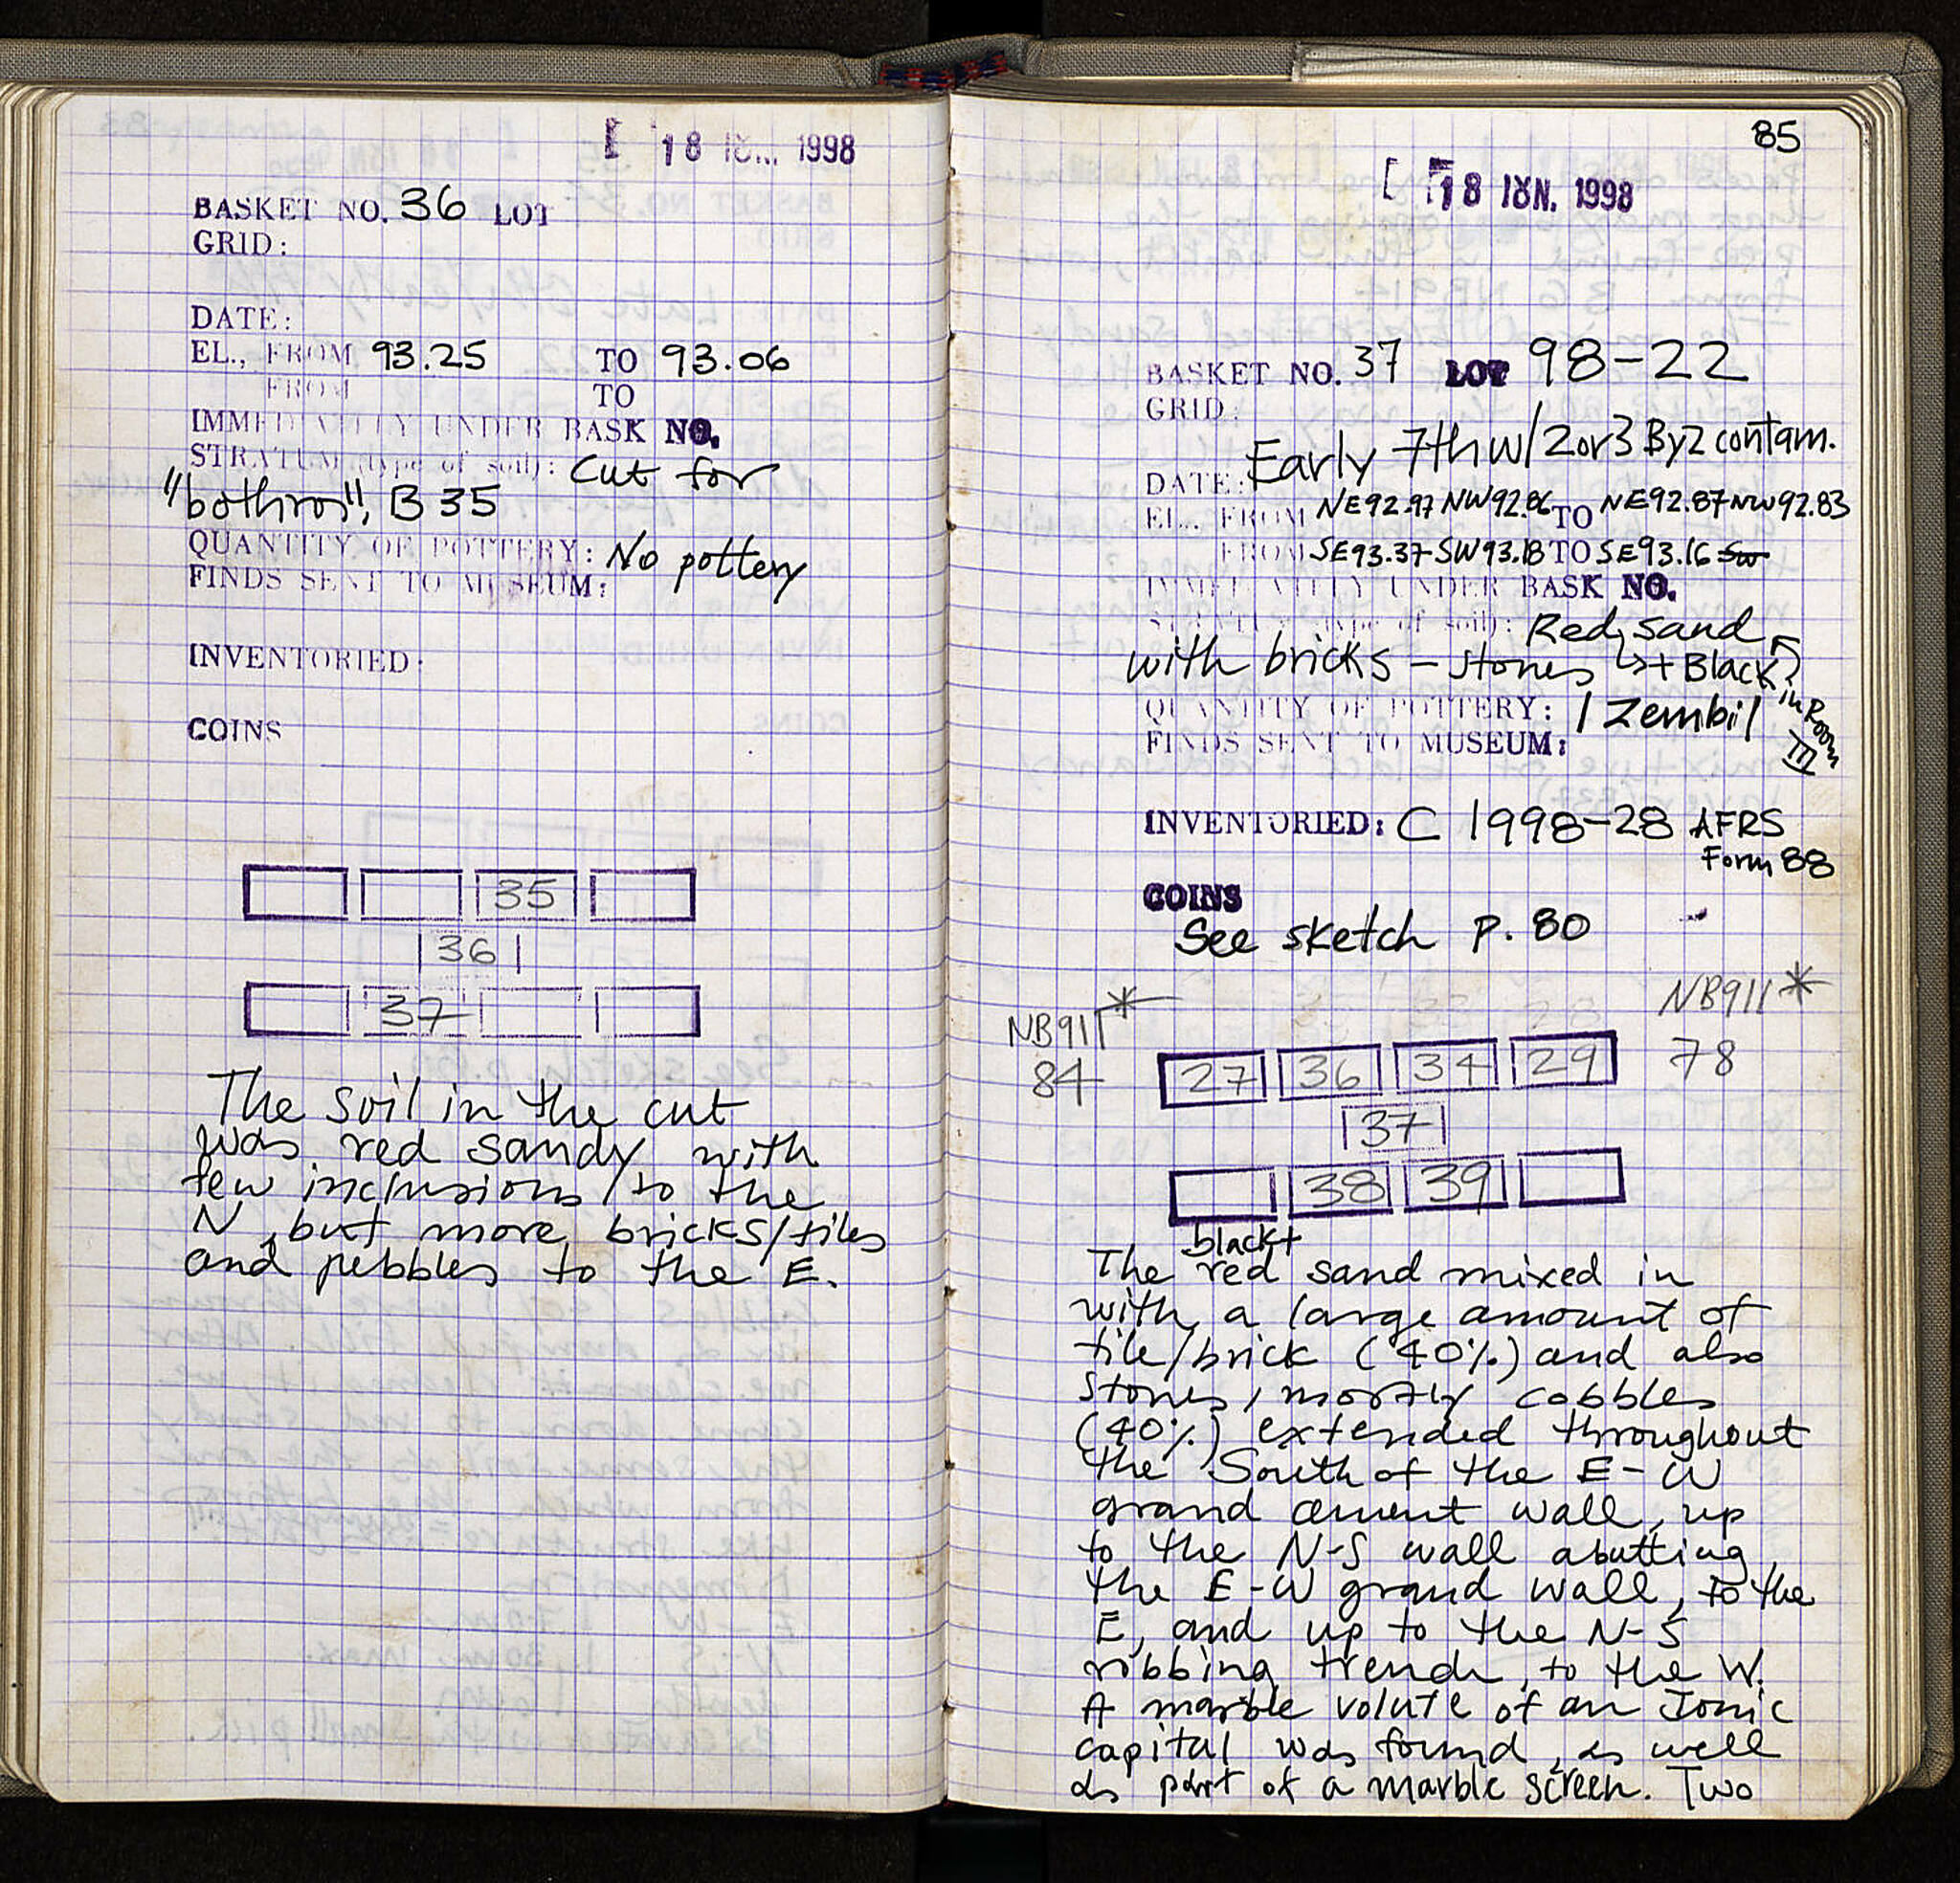 18 ΙΟΥ... 1998
BASKET NO. 36 LOT
GRID:
DATE:
EL., FROM 93.25 TO 93.06
FROM TO
IMMEDIATELY UNDER BASK NO.
STRATUM (type of soil): Cut for
"bothros", B 35
QUANTITY OF POTTERY: No pottery
FINDS SENT TO MUSEUM:
INVENTORIED:
COINS
35
36
37
The soil in the cut
was red sandy with
few inclusions to the
N, but more bricks/tiles
and pebbles to the E.
85
18 ΙΟΥΝ. 1998
BASKET NO. 37 LOT 98-22
GRID:
Early 7th w/ 2 or 3 Byz contam.
DATE:
EL., FROM NE 92.97 NW 92.86 TO NE 92.87 NW 92.83
FROM SE 93.37 SW 93.18 TO SE 93.16 SW
IMMEDIATELY UNDER BASK NO.
STRATUM (type of soil): Red sand
with bricks - stones + Black
in Room III
QUANTITY OF POTTERY: 1 Zembil
FINDS SENT TO MUSEUM:
INVENTORIED: C 1998-28 AFRS
Form 88
COINS
See sketch p. 80
NB911* NB911*
84 27 36 34 29 78
37
38 39
black +
The red sand mixed in
with a large amount of
tile/brick (40%) and also
stones, mostly cobbles
(40%) extended throughout
the South of the E-W
grand cement wall, up
to the N-S wall abutting
the E-W grand wall, to the
E, and up to the N-S
robbing trench, to the W.
A marble volute of an Ionic
capital was found, as well
as part of a marble screen. Two